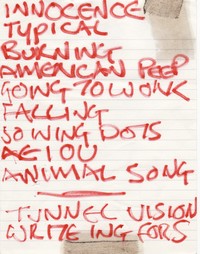 INNOCENCE
TYPICAL
BURNING
AMERICAN PEEP
GOING TO WORK
FALLING
JOINING DOTS
AEIOU
ANIMAL SONG
TUNNEL VISION
WRITE ING FORS